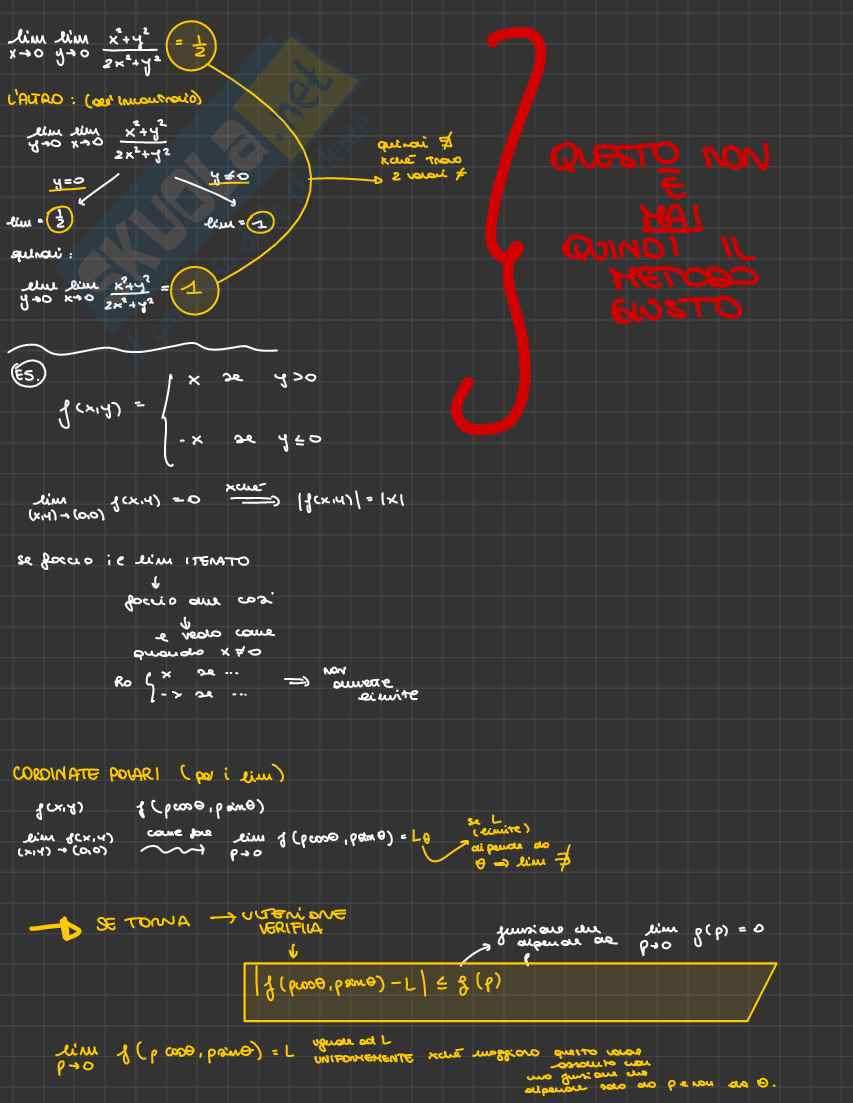 lim x→0 lim y→0 x²+y² / 2x²+y² = 1/2
L'ALTRO : (all'incontrario)
lim y→0 lim x→0 x²+y² / 2x²+y²
y=0 y≠0
lim = 1/2 lim = 1
quindi ∄
xché trovo
2 valori ≠
quindi :
lim y→0 lim x→0 x²+y² / 2x²+y² = 1
QUESTO NON
È
MAI
QUINDI IL
METODO
GIUSTO
SKUOLA.net
ES.
f(x,y) = { x se y>0
-x se y≤0
lim (x,y)→(0,0) f(x,y) = 0 xché ⟹ |f(x,y)| = |x|
se faccio il lim ITERATO
↓
faccio due così
↓
e vedo come
quando x≠0
Ho { x se ...
-x se ...
⟹ non
ammette
limite
CORDINATE POLARI (per i lim)
f(x,y) f(ρcosθ, ρsinθ)
lim (x,y)→(0,0) f(x,y) come fare lim ρ→0 f(ρcosθ, ρsinθ) = Lθ
se L
(limite)
dipende da
θ ⟹ lim ∄
SE TORNA → ULTERIORE
VERIFICA
↓
funzione che
dipende da
ρ
lim ρ→0 g(ρ) = 0
|f(ρcosθ, ρsinθ) - L| ≤ g(ρ)
lim ρ→0 f(ρ cosθ, ρsinθ) = L uguale ad L
UNIFORMEMENTE xché maggioro questo valore
assoluto con
una funzione che
dipende solo da ρ e non da θ.